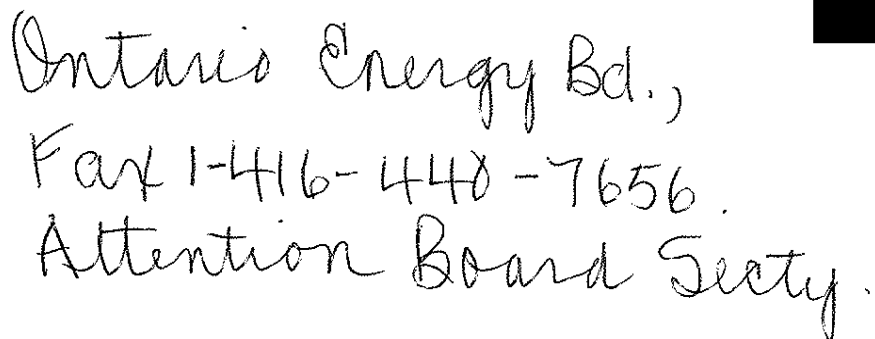 Ontario Energy Bd.,
Fax 1-416-440-7656.
Attention Board Secty.